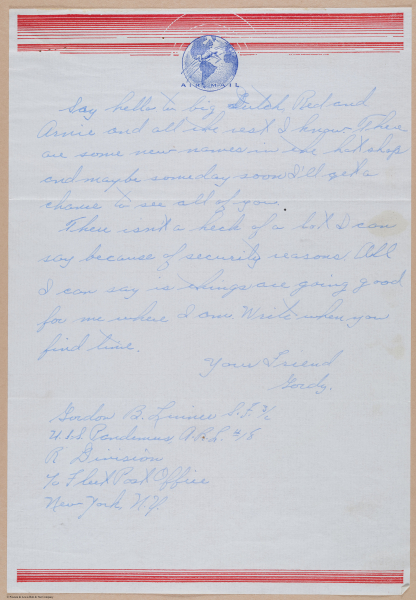 AIR MAIL
Say hello to big Dutch, Red and
Arnie and all the rest I knew. There
are some new names in the hot shop
and maybe someday soon I'll get a
chance to see all of you.
There isn't a heck of a lot I can
say because of security reasons. All
I can say is things are going good
for me where I am. Write when you
find time.
Your Friend
Gordy.
Gordon B. S.F. 2/c
U.S.S. Pandemus A.R.L. #18
R Division
c/o Fleet Post Office
New York, N.Y.